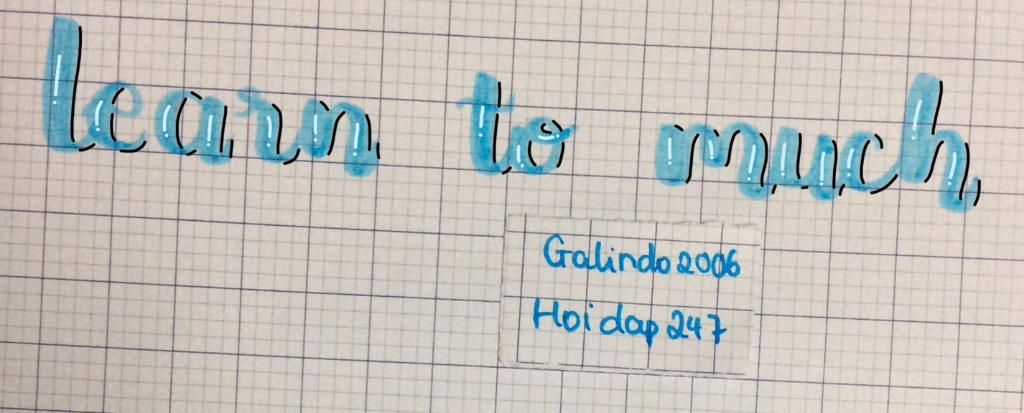 learn to much
Galindo2006
Hoidap247